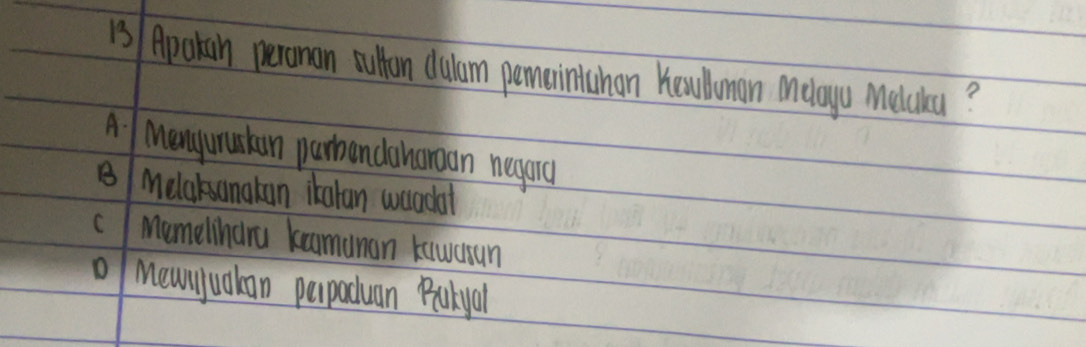 13 Apakah peranan sultan dalam pemerintahan Kesultanan Melayu Melaka ?
A. Menguruskan perbendaharaan negara
B Melaksanakan ikatan waadat
C Memelihara keamanan kawasan
D Mewujudkan perpaduan Rakyat